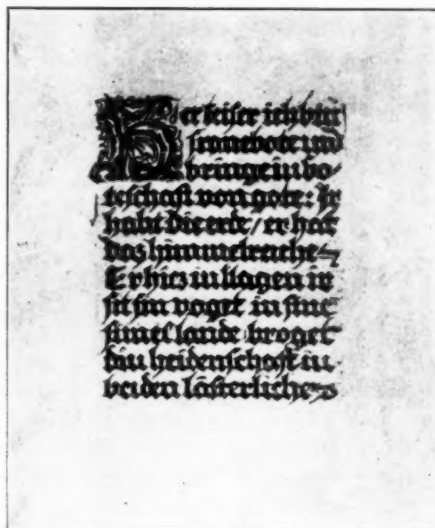 Her keiser ich bin
fronebote und
bringe iu bo-
teschaft von gote: Ir
habt die erde / er hat
das himmelreiche
Er hies iu klagen ir
sit sin voget in sine
sines lande broget
diu heidenschaft iu
beiden lästerliche